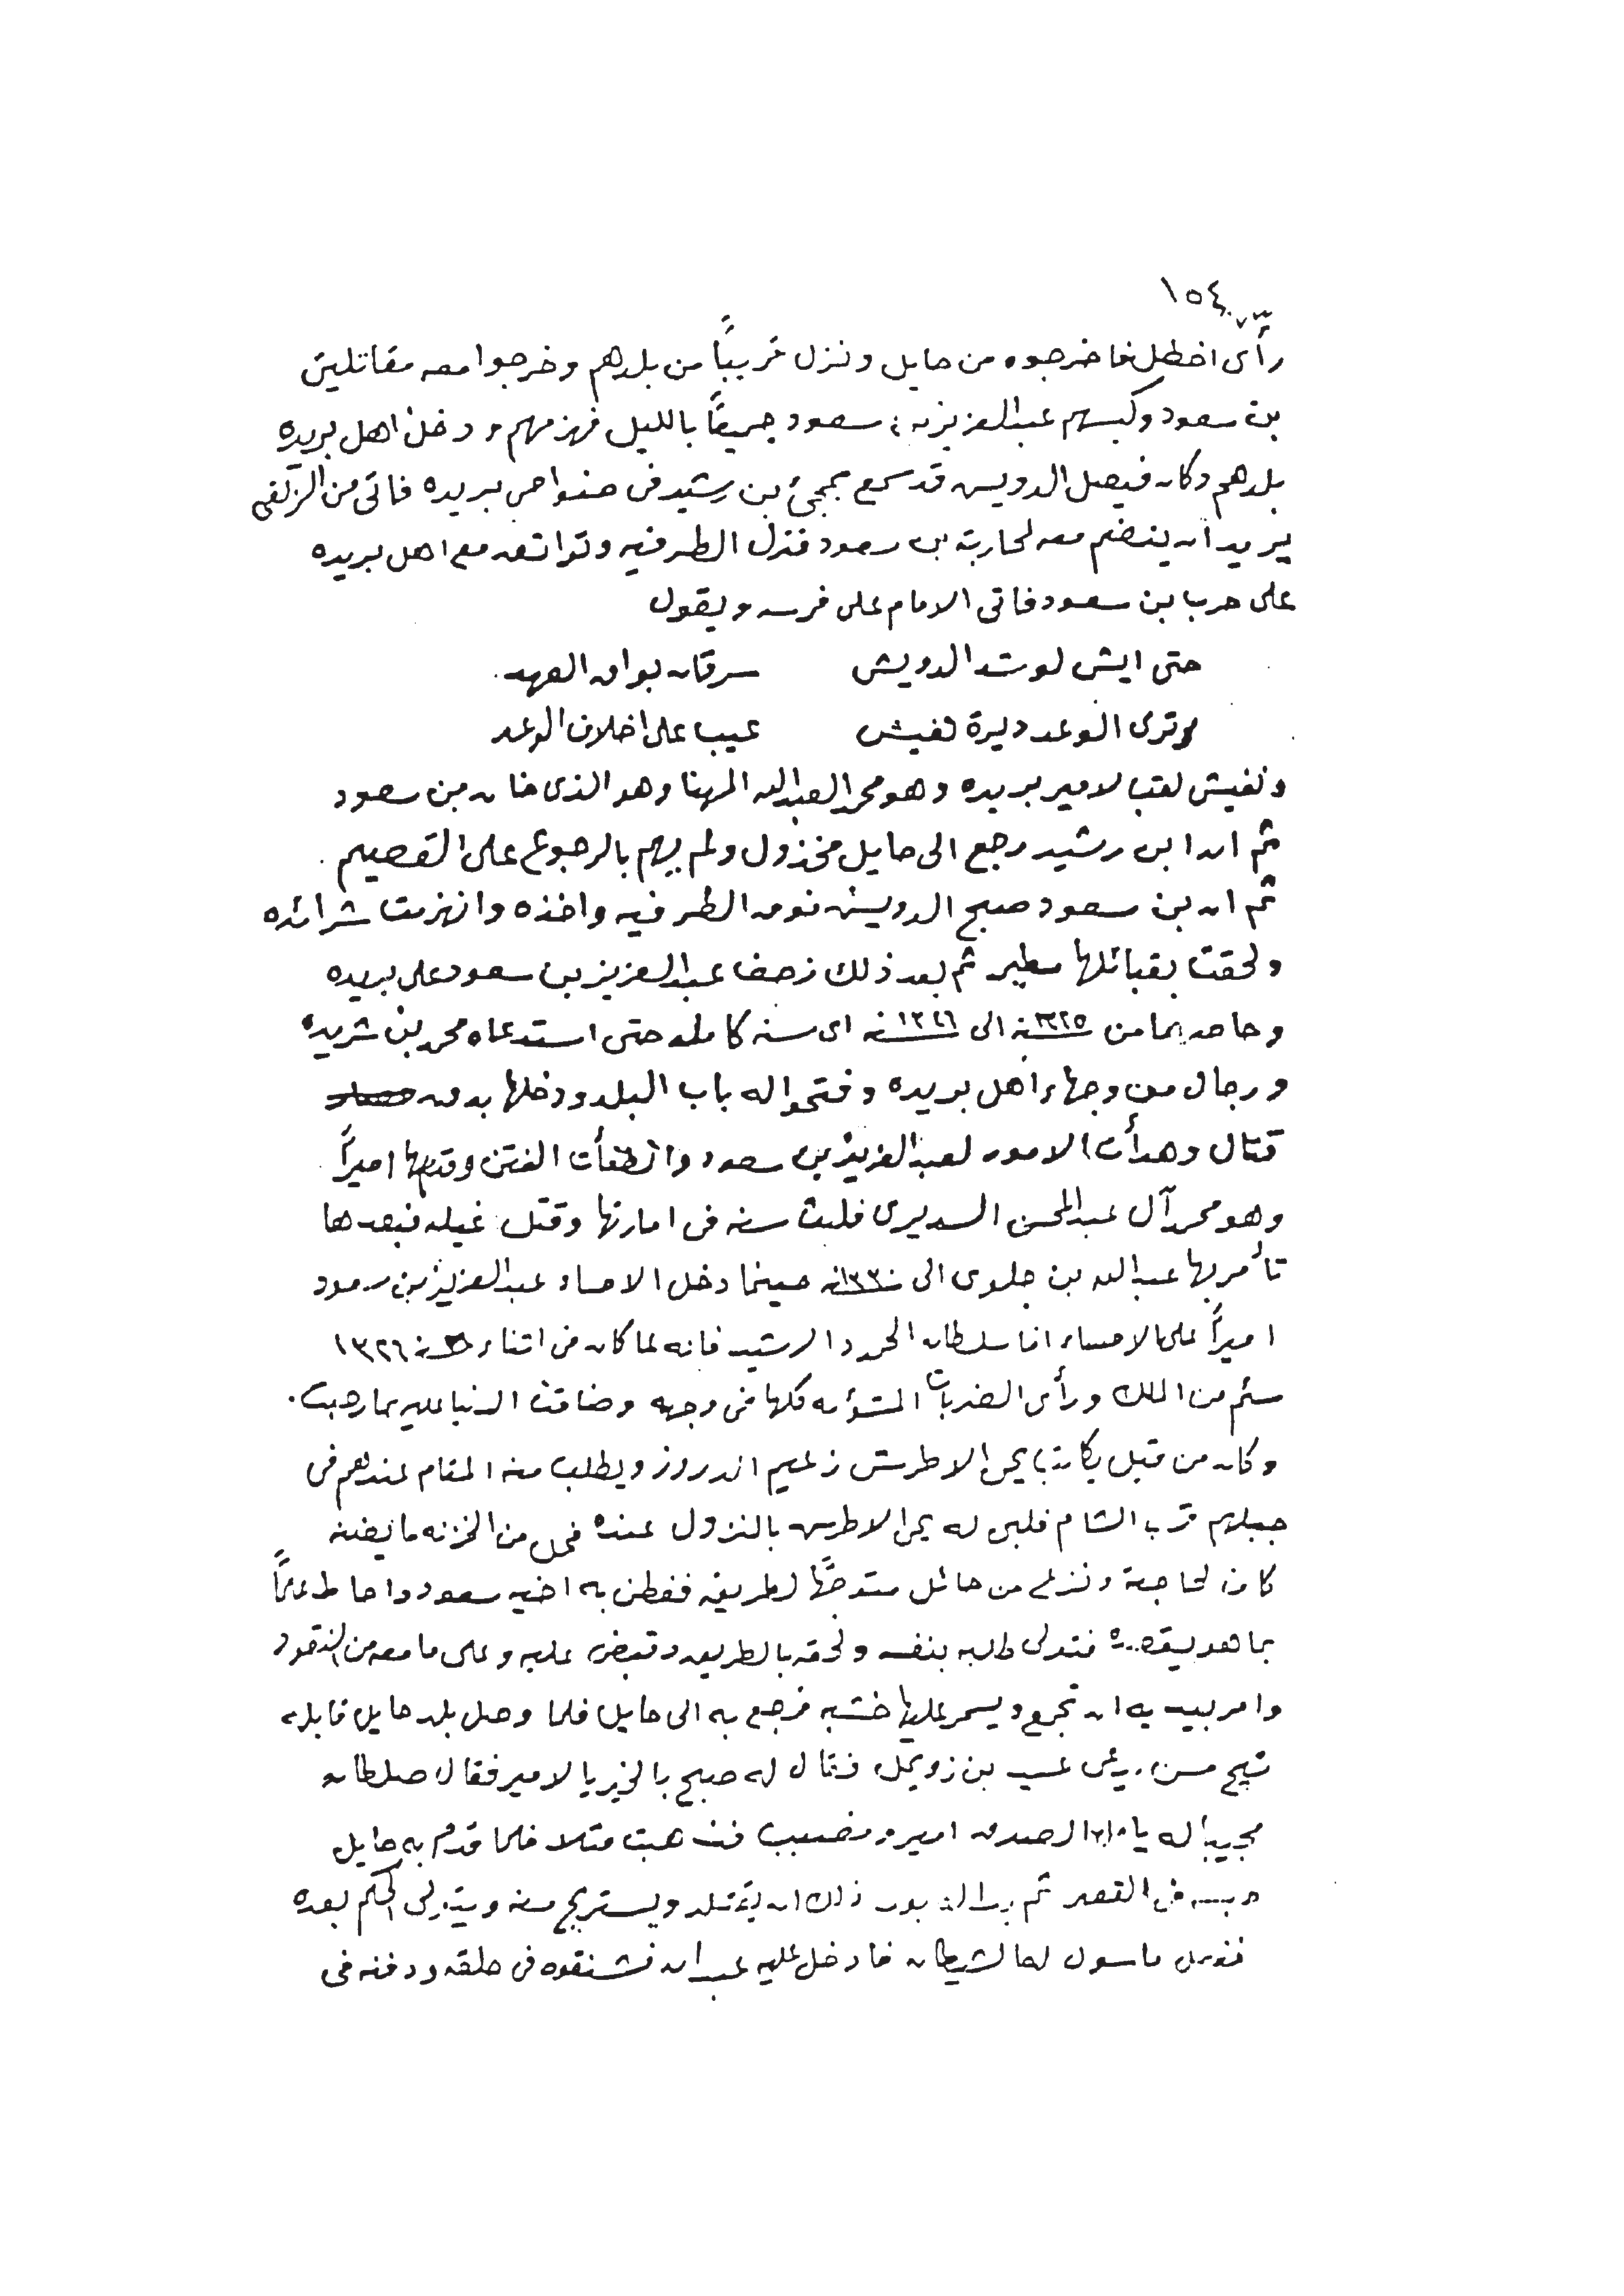 ١٥٤
رأى اخطل فاخرجوه من حايل ونزل قريباً من بلدهم وخرجوا معه مقاتلين
بن سعود وكبسهم عبدالعزيز بن سعود جميعاً بالليل فهزمهم ودخلن اهل بريده
بلدهم وكان فيصل الدويس قد سمع بمجئ بن رشيد في ضواحي بريده فاتى من الزلفي
يريد ان ينضم معه لمحاربة بن سعود فنزل الطرفيه وتواتعد مع اهل بريده
على حرب بن سعود فاتى الامام على فرسه ويقول
حتى ايش لو شد الدويش سرقان بواق العهد
وترى الوعد ديرة نفيش عيب على اخلاف الوعد
ونفيش لقب لامير بريده وهو محمد العبدالله المهنا وهو الذي خان بن سعود
ثم ان ابن رشيد رجع الى حايل مخذول ولم يهم بالرجوع على القصيم
ثم ان بن سعود صبح الدويش فوق الطرفيه واخذه وانهزمت شرائده
ولحقت بقبائلها مطير ثم بعد ذلك زحف عبدالعزيز بن سعود على بريده
وحاصرها من ١٣٢٥ سنة الى ١٣٢٦ سنة اى سنه كامله حتى استدعاه محمد بن شريده
ورجال من وجهاء اهل بريده وفتحوا له باب البلد ودخلها بدون
قتال وهدأت الامور لعبدالعزيز بن سعود وانطفأت الفتن وقتها اميراً
وهو محمد آل عبدالمحسن السديري فلبث سنه في امارتها وقتل غيله فبعدها
تأمر بها عبدالله بن جلوى الى ١٣٣٠ سنة حينما دخل الاحساء عبدالعزيز بن سعود
اميراً على الاحساء اما سلطان الحمود الرشيد فانه لما كان في اثناء سنة ١٣٢٦
سئم من الملك ورأى الضربات المشؤمه كلها في وجهه وضاقت الدنيا عليه بما رحبت
وكان من قبل يكاتب يحي الاطرش زعيم الدروز ويطلب منه المقام عندهم في
جبلهم قرب الشام فلبى له يحي الاطرس بالنزول عنده فحمل من الخزنه ما يضنه
كافٍ لحاجته ونزع من حائل متوجهًا لطريقه ففطن به اخيه سعود واحاط علماً
بما هو بقصده فتولى طلبه بنفسه ولحقه بالطريق وقبض عليه وعلى ما معه من النقود
وامر بيديه ان تجمع ويسمر عليها خشبه فرجع به الى حايل فلما وصل بلد حايل قابله
شيخ مسن يدعى عسيب بن زويمل فقال له صبح بالخير يالامير فقال صلطان
مجيباً له امير ومضبب فذهبت مثلا فلما قدم به حايل
حبسه في القصر ثم بدا له بعد ذلك ان يقتله ويستريح منه ويتولى الحكم بعده
سول لها لشيطان فادخل عليه عبدان فشنقوه في حلقه ودفنه في